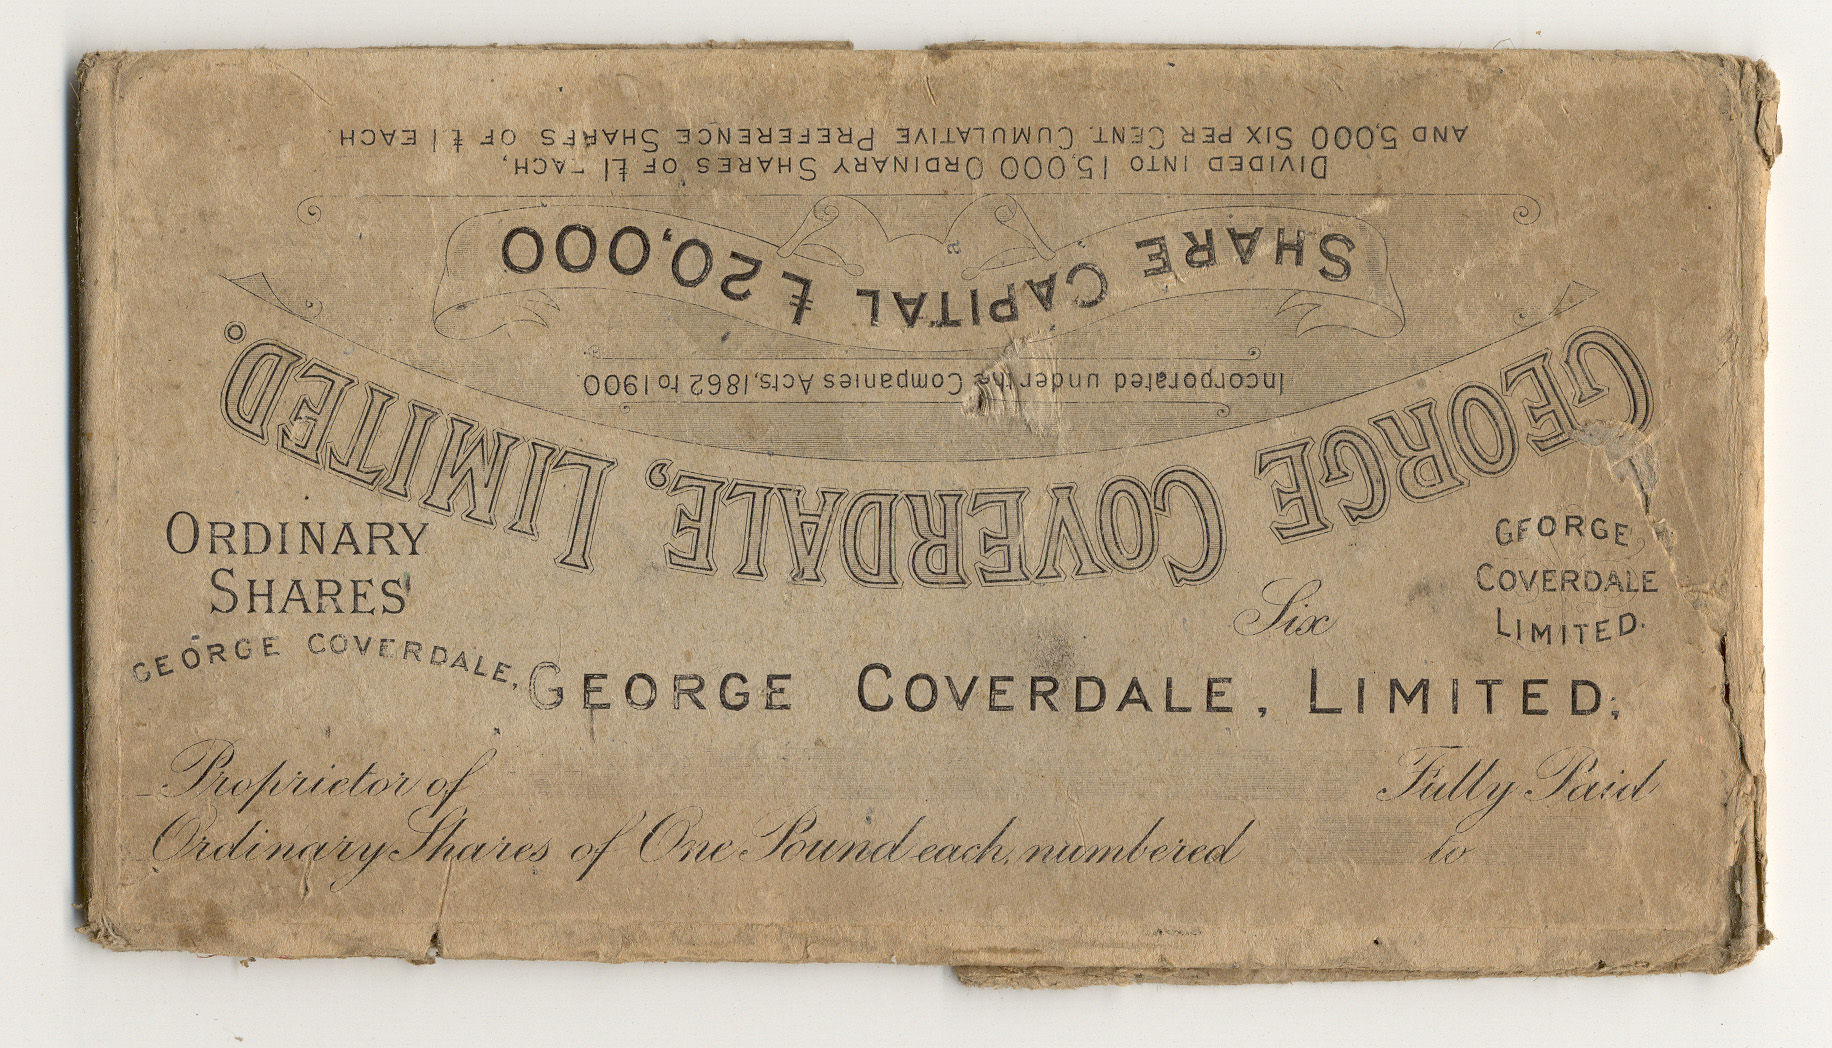 AND 5,000 SIX PER CENT. CUMULATIVE PREFERENCE SHARES OF £1 EACH.
DIVIDED INTO 15,000 ORDINARY SHARES OF £1 EACH,
SHARE CAPITAL £20,000
a
Incorporated under the Companies Acts, 1862 to 1900.
GEORGE COVERDALE, LIMITED.
ORDINARY
SHARES
GEORGE COVERDALE,
Six
GEORGE
COVERDALE
LIMITED.
GEORGE COVERDALE, LIMITED;
Proprietor of Fully Paid
Ordinary Shares of One Pound each, numbered to